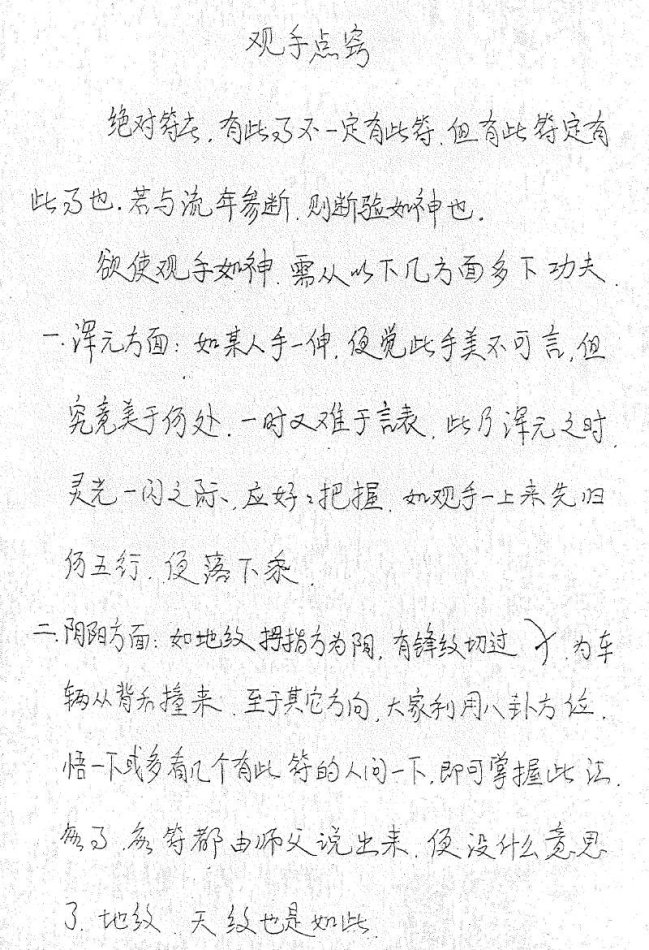 观手点窍
绝对符在,有此了不一定有此符.但有此符定有
此了也.若与流年参断.则断验如神也.
欲使观手如神.需从以下几方面多下功夫.
一.浑元方面:如某人手一伸,便觉此手美不可言,但
究竟美于何处.一时又难于言表.此乃浑元之时.
灵光一闪之际、应好:把握.如观手一上来先归
何五行.便落下乘.
二.阴阳方面:如地纹拇指方为阴,有锋纹切过 .为车
辆从背后撞来.至于其它方向,大家利用八卦方位.
悟一下或多看几个有此符的人问一下,即可掌握此法.
每了.每符都由师父说出来.便没什么意思
了.地纹.天纹也是如此